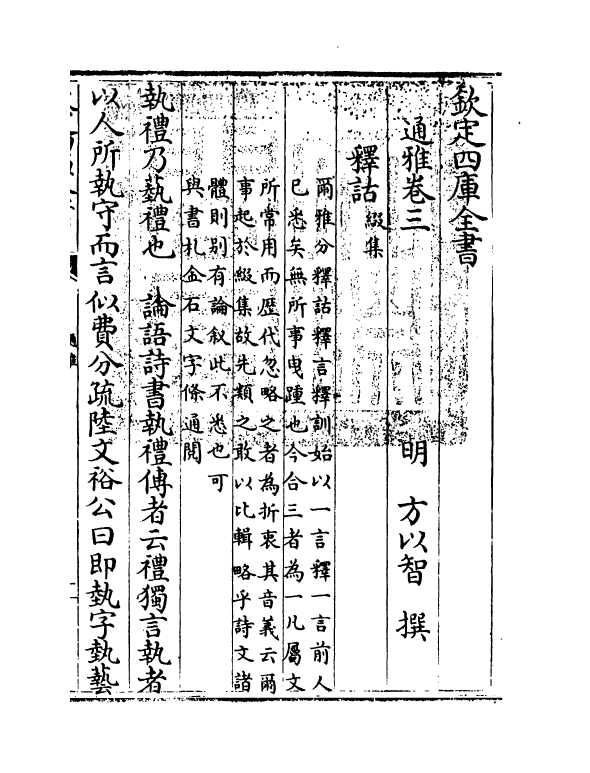 欽定四庫全書
通雅卷三
明　方以智　撰
釋詁綴集
爾雅分釋詁釋言釋訓始以一言釋一言前人
已悉矣無所事曳踵也今合三者為一凡屬文
所常用而歴代忽略之者為折衷其音義云爾
事起於綴集故先類之敢以比輯略乎詩文諸
體則别有論叙此不悉也可
與書札金石文字條通閱
執禮乃蓺禮也　論語詩書執禮傳者云禮獨言執者
以人所執守而言似費分疏陸文裕公曰即埶字埶藝
通雅